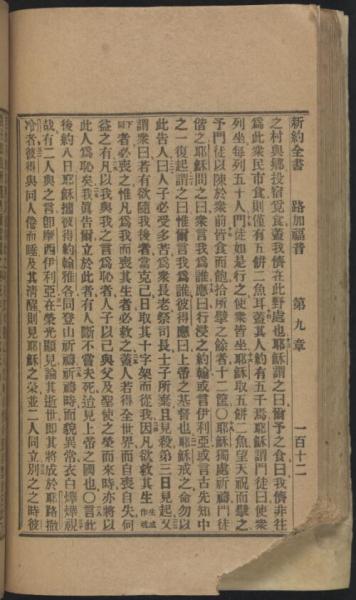 新約全書　路加福音　第九章　一百十二
之村與鄉投宿覓食蓋我儕在此野處也耶穌謂之曰爾予之食曰我儕非往
爲此衆民市食則僅有五餅二魚耳蓋其人約有五千焉耶穌謂門徒曰使衆
列坐每列五十人門徒如是行之使衆皆坐耶穌取五餅二魚望天祝而擘之
予門徒以陳於衆前皆食而飽拾所擘之餘者十二筐〇耶穌獨處祈禱門徒
偕之耶穌問之曰衆言我爲誰應曰行浸之約翰或言伊利亞或言古先知中
之一復起謂之曰惟爾言我爲誰彼得應曰上帝之基督也耶穌戒之命勿以
此告人曰人子必受多苦爲衆長老祭司長士子所棄且見殺第三日見起又
謂衆曰若有欲隨我後者當克己日取其十字架而從我因凡欲救其生
者必喪之惟凡爲我而喪其生者必救之蓋人若得全世界而自喪自失何
益之有凡以我與我之言爲恥者人子以己與父及聖使之榮而來時亦將以
此人爲恥矣我眞告爾立於此者有人斷不嘗夫死迨見上帝之國也〇言此
後約八日耶穌攜彼得約翰雅各同登山祈禱祈禱時而貌異常衣白燁燁視
哉有二人與之言卽摩西伊利亞在榮光顯見論其逝世卽其將成於耶路撒
冷者彼得與同人倦而睡及其清醒則見耶穌之榮並二人同立別之之時彼